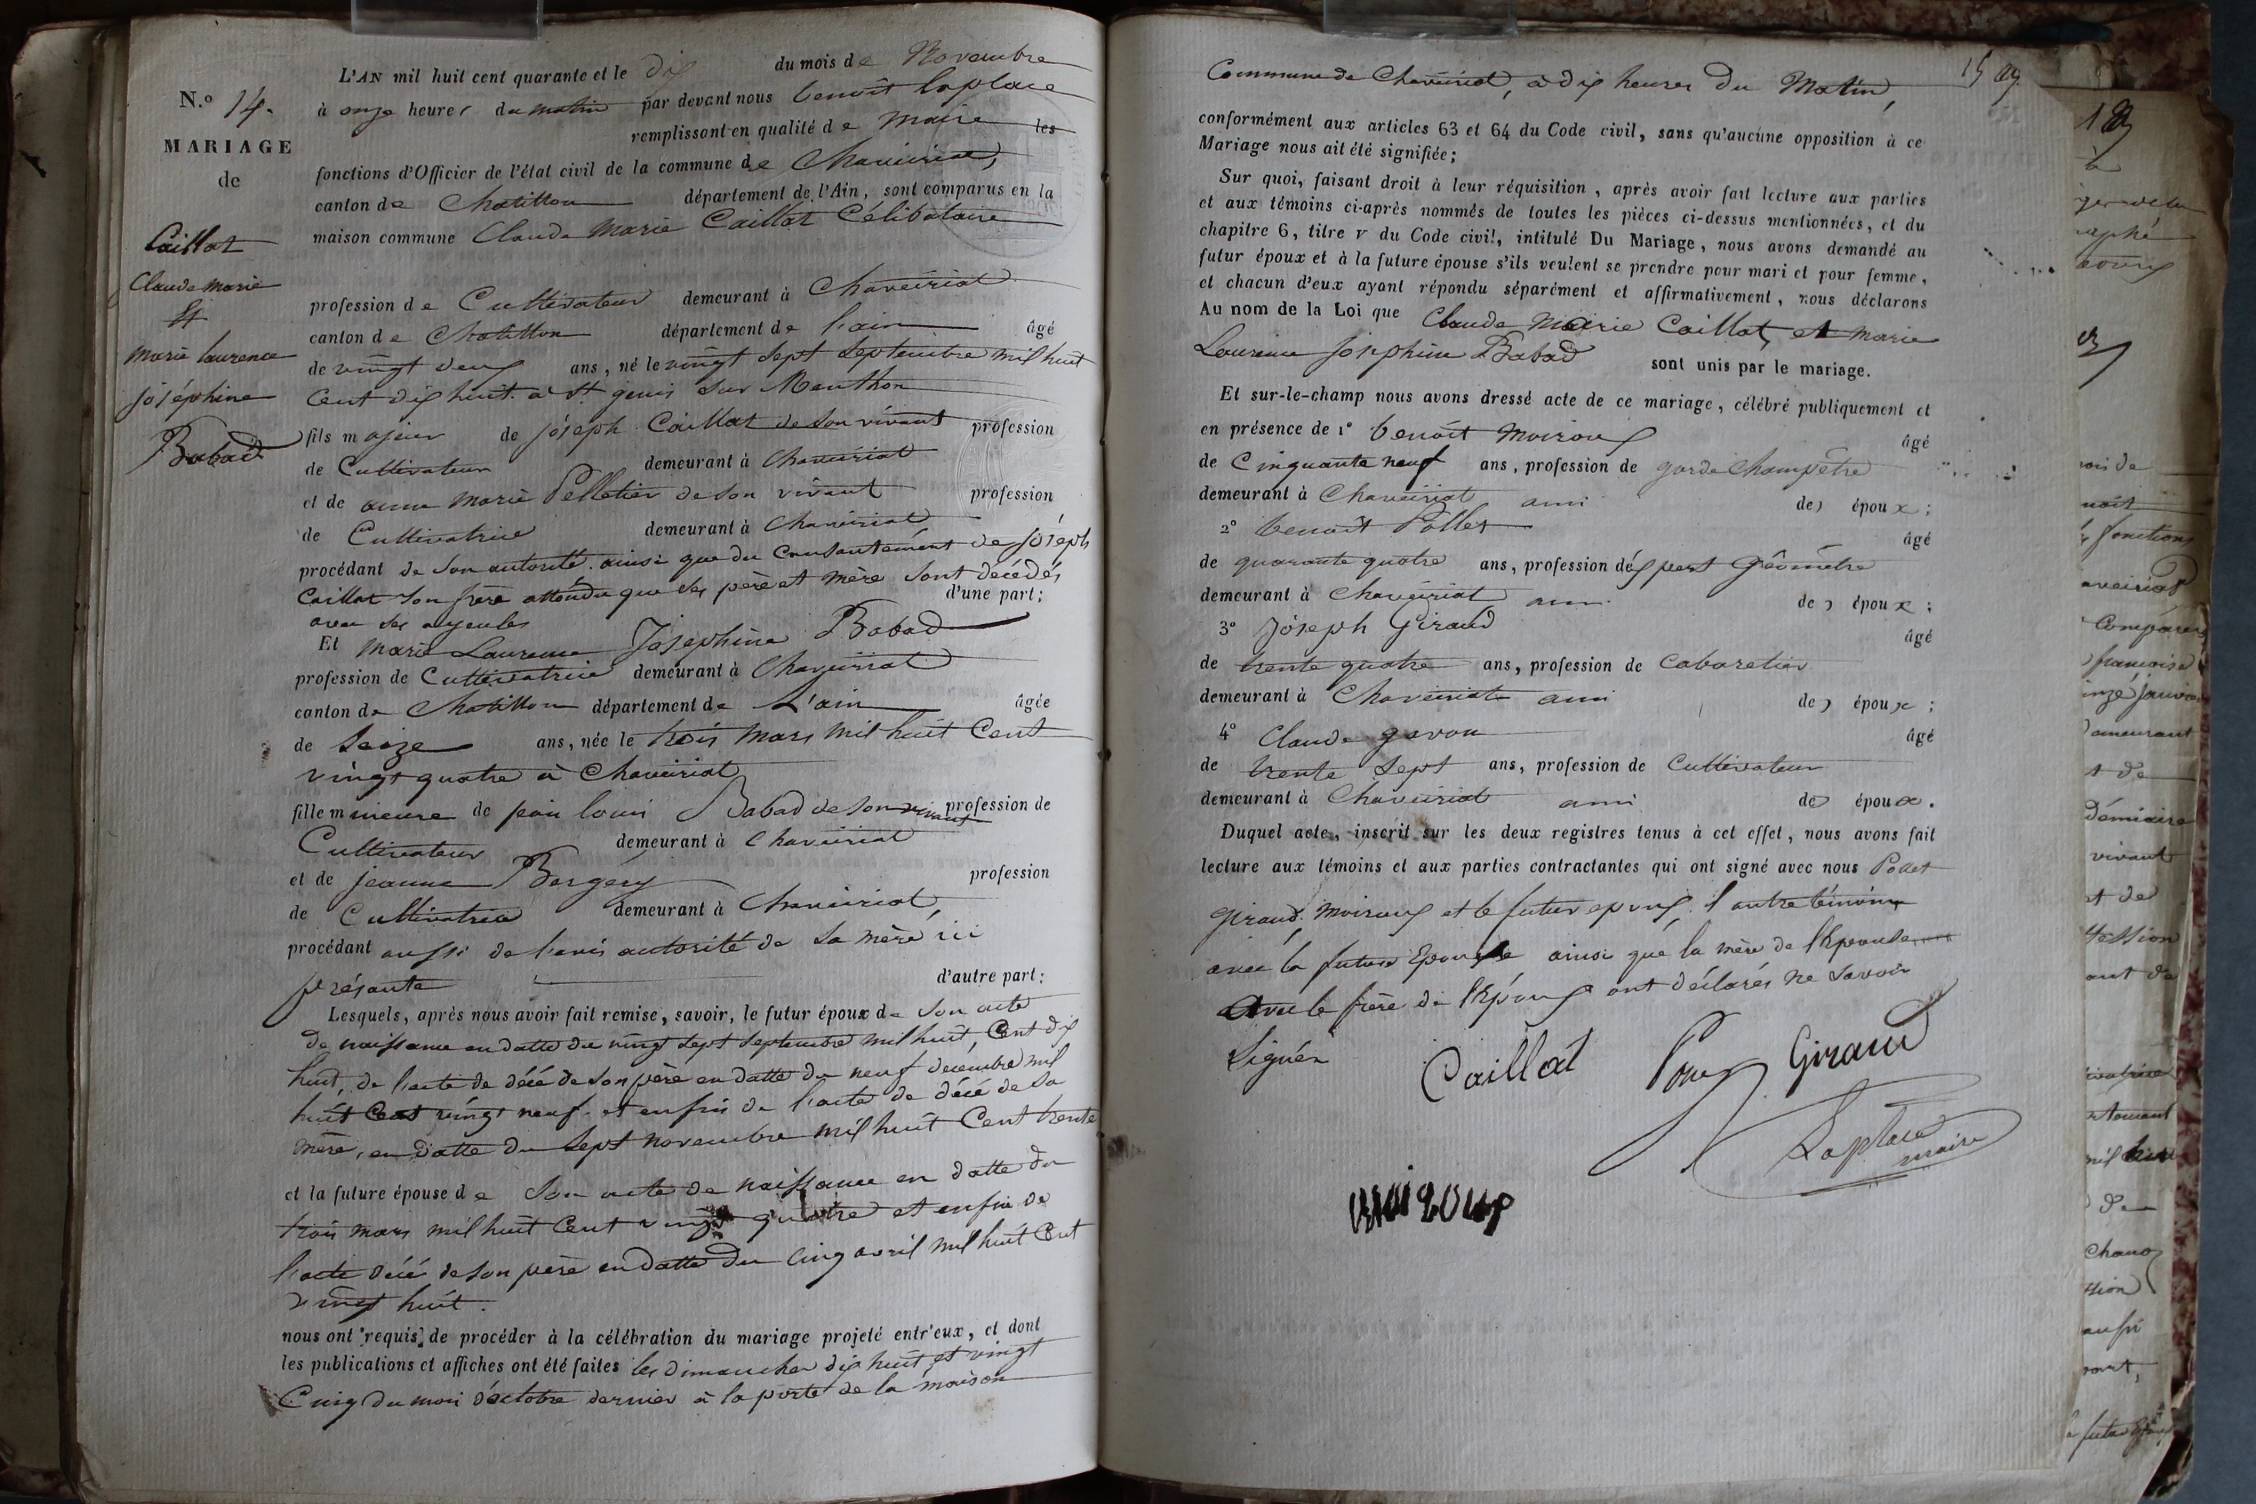 N.º 14.
MARIAGE
de
Caillat
Claude marie
Et
marie laurence
joséphine
Babad
L'AN mil huit cent quarante et le dix du mois de Novembre
à onze heures du matin par devant nous benoît laplace
remplissant en qualité de maire les
fonctions d'Officier de l'état civil de la commune de Chaveiriat,
canton de Chatillon département de l'Ain, sont comparus en la
maison commune Claude Marie Caillat Célibataire
profession de Cultivateur demeurant à Chaveiriat
canton de Chatillon département de l'ain âgé
de vingt deux ans, né le vingt sept septembre mil huit
Cent dix huit à St genis sur Menthon
fils majeur de joseph Caillat de son vivant profession
de Cultivateur demeurant à Chaveiriat
et de anne marie Pelletier de son vivant profession
de Cultivatrice demeurant à Chaveiriat
procédant de son autorité ainsi que du Consantement de joseph
Caillat son frère attendu que ses père et mère sont décédés
avec ses ayeules d'une part;
Et marie Laurence Josephine Babad
profession de Cultivatrice demeurant à Chaveiriat
canton de Chatillon département de L'ain âgée
de Seize ans, née le trois mars mil huit Cent
vingt quatre à Chaveiriat
fille mineure de jean louis Babad de son vivant profession de
Cultivateur demeurant à Chaveiriat
et de jeanne Bergery profession
de Cultivatrice demeurant à Chaveiriat,
procédant aussi de l'avis autorité de sa mère ici
présante d'autre part:
Lesquels, après nous avoir fait remise, savoir, le futur époux de son acte
de naissance en datte du vingt sept septembre mil huit, Cent dix
huit, de l'acte de décé de son père en datte du neuf décembre mil
huit Cent vingt neuf et enfin de l'acte de décé de sa
mère, en datte du sept novembre mil huit Cent trente
et la future épouse de son acte de naissance en datte du
trois mars mil huit Cent vingt quatre et enfin de
l'acte décé de son père en datte du cinq avril mil huit Cent
vingt huit.
nous ont requis de procéder à la célébration du mariage projeté entr'eux, et dont
les publications et affiches ont été faites les dimanches dix huit et vingt
Cinq du moi d'octobre dernier à la porte de la maison
Commune de Chaveiriat, à dix heures du Matin,
conformément aux articles 63 et 64 du Code civil, sans qu'aucune opposition à ce
Mariage nous ait été signifiée;
Sur quoi, faisant droit à leur réquisition, après avoir fait lecture aux parties
et aux témoins ci-après nommés de toutes les pièces ci-dessus mentionnées, et du
chapitre 6, titre v du Code civil, intitulé Du Mariage, nous avons demandé au
futur époux et à la future épouse s'ils veulent se prendre pour mari et pour femme,
et chacun d'eux ayant répondu séparément et affirmativement, nous déclarons
Au nom de la Loi que Claude Marie Caillat, et marie
Laurence Josephine Babad sont unis par le mariage.
Et sur-le-champ nous avons dressé acte de ce mariage, célébré publiquement et
en présence de 1º benoît Moiroux âgé
de Cinquante neuf ans, profession de garde Champêtre
demeurant à Chaveiriat ami des époux;
2º benoît Pollet âgé
de quarante quatre ans, profession d'éxpert Géomètre
demeurant à Chaveiriat ami des époux;
3º Joseph Giraud âgé
de trente quatre ans, profession de Cabaretier
demeurant à Chaveiriat ami des époux;
4º Claude gavon âgé
de trente sept ans, profession de Cultivateur
demeurant à Chaveiriat ami des époux.
Duquel acte, inscrit sur les deux registres tenus à cet effet, nous avons fait
lecture aux témoins et aux parties contractantes qui ont signé avec nous Pollet
Giraud Moiroux et le futur epoux l'autre témoin
avec la future Epouse ainsi que la mère de l'Epouse
Avec le frère de l'Epoux ont déclarés ne savoir
signér
Caillat Giraud
Laplace
maire
moiroux